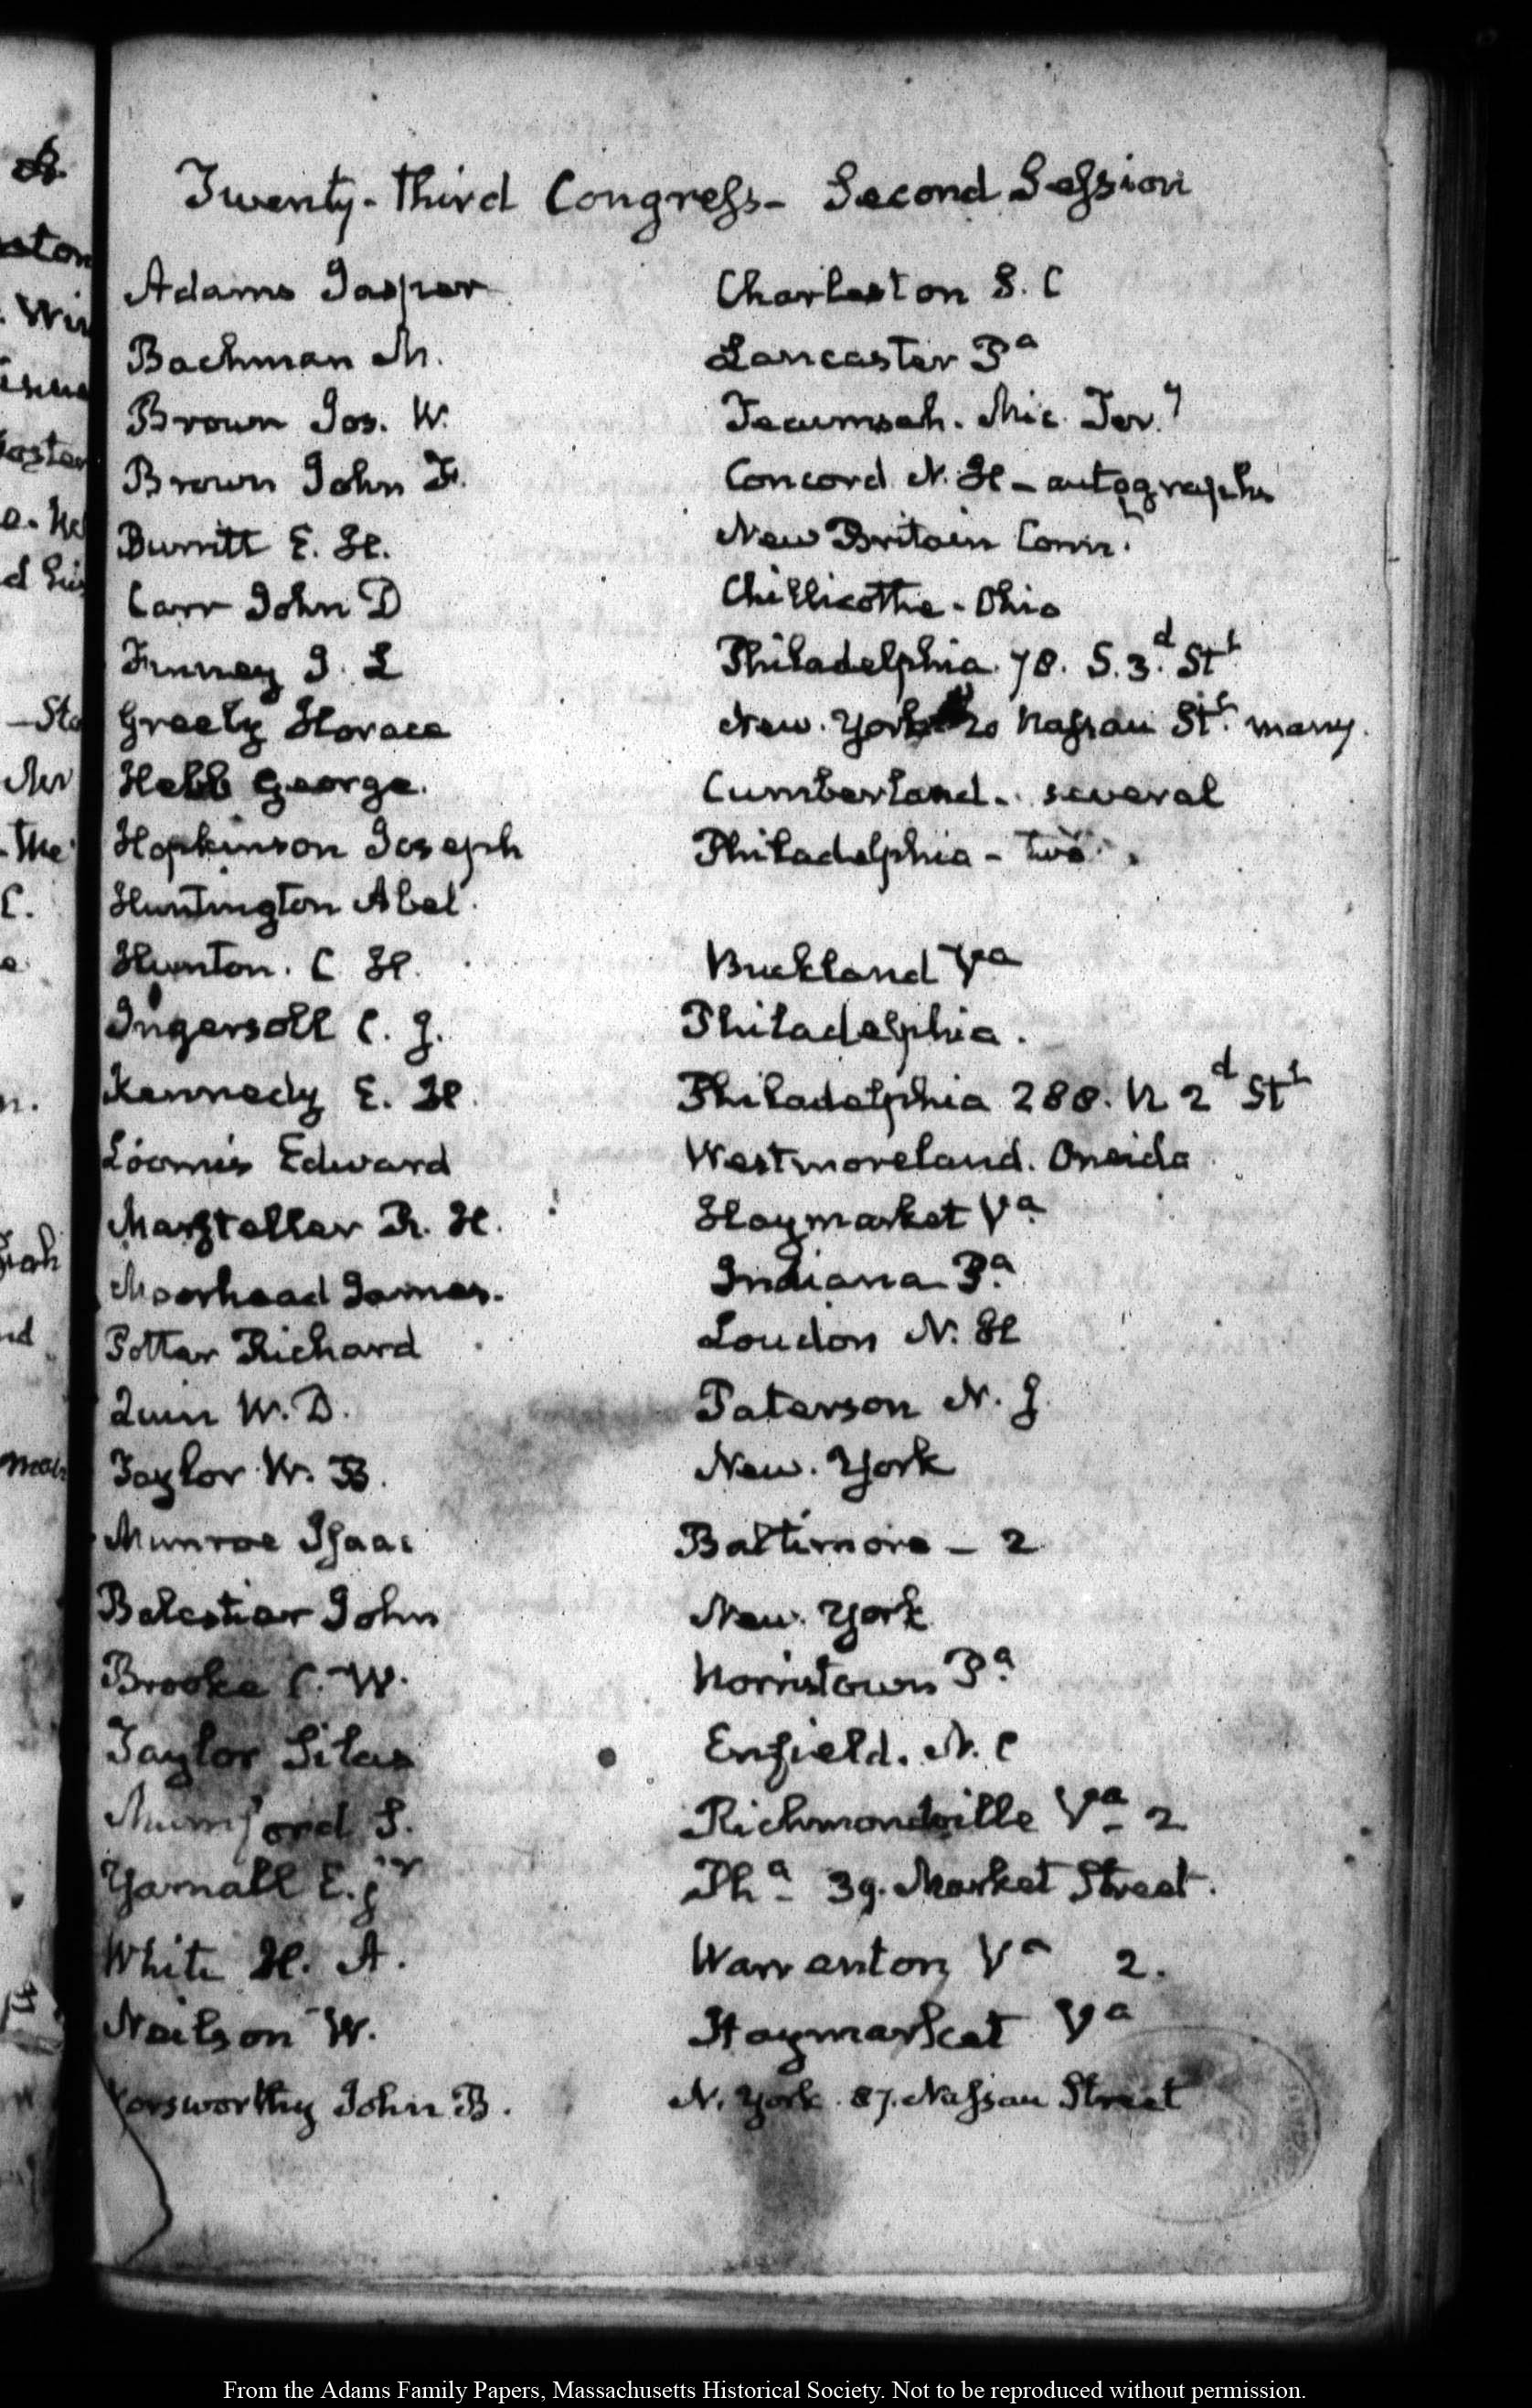 Twenty-third Congress - Second Session
Adams Jasper Charleston S. C
Bachman M. Lancaster Pa
Brown Jos. W. Tecumseh. Mic. Tery
Brown John F. Concord N. H - autographs
Burritt E. H. New Britain Conn.
Carr John D Chillicothe - Ohio
Finney J. L Philadelphia. 78. S. 3.d Stt
Greely Horace New. York 20 Nassau Stt. many.
Hebb George. Cumberland. several
Hopkinson Joseph Philadelphia - two
Huntington Abel.
Hunton. C H. Buckland Va
Ingersoll C. J. Philadelphia.
Kennedy E. H. Philadelphia 288. N 2d Stt
Loomis Edward Westmoreland. Oneida
Marsteller R. H. Haymarket Va
Moorhead James. Indiana Pa
Potter Richard Loudon N. H
Quin W. D. Paterson N. J.
Taylor W. B. New. York
Munroe Isaac Baltimore - 2
Balestier John New. York
Brooke C. W. Norristown Pa
Taylor Silas Enfield. N. C
Mumford S. Richmondville Va - 2
Yarnall E. jr Pha - 39. Market Street.
White H. A. Warrenton Va 2.
Neilson W. Haymarket Va
John B. N. York. 87. Nassau Street
From the Adams Family Papers, Massachusetts Historical Society. Not to be reproduced without permission.